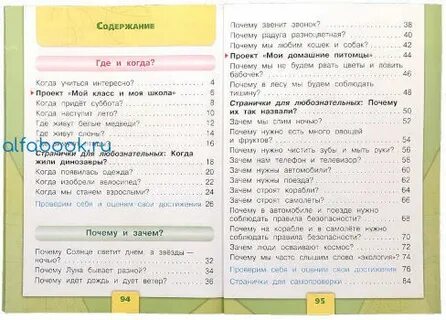 СОДЕРЖАНИЕ
Где и когда?
Когда учиться интересно? 4
Проект «Мой класс и моя школа» 6
Когда придёт суббота? 8
Когда наступит лето? 10
Где живут белые медведи? 12
Где живут слоны? 14
16
Странички для любознательных: Когда
жили динозавры? 18
Когда появилась одежда? 20
Когда изобрели велосипед? 22
Когда мы станем взрослыми? 24
Проверим себя и оценим свои достижения 26
Почему и зачем?
Почему Солнце светит днём, а звёзды —
ночью? 32
Почему Луна бывает разной? 34
Почему идёт дождь и дует ветер? 36
94
Почему звенит звонок? 38
Почему радуга разноцветная? 40
Почему мы любим кошек и собак? 42
Проект «Мои домашние питомцы» 44
Почему мы не будем рвать цветы и ловить
бабочек? 46
Почему в лесу мы будем соблюдать
тишину? 48
Странички для любознательных: Почему
их так назвали? 50
Зачем мы спим ночью? 52
Почему нужно есть много овощей
и фруктов? 54
Почему нужно чистить зубы и мыть руки? 56
Зачем нам телефон и телевизор? 58
Зачем нужны автомобили? 60
Зачем нужны поезда? 62
Зачем строят корабли? 64
Зачем строят самолёты? 66
Почему в автомобиле и поезде нужно
соблюдать правила безопасности? 68
Почему на корабле и в самолёте нужно
соблюдать правила безопасности? 70
Зачем люди осваивают космос? 72
Почему мы часто слышим слово «экология»? 74
Проверим себя и оценим свои достижения 76
Странички для самопроверки 84
95
alfabook.ru